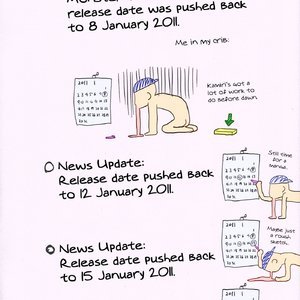 release date was pushed back
to 8 January 2011.
Me in my crib:
2011 1
Kamiri's got a
lot of work to
do before dawn.
News Update:
Release date pushed back
to 12 January 2011.
Still time
for a
manga.
2011 1
News Update:
Release date pushed back
to 15 January 2011.
Maybe just
a rough
sketch.
2011 1
2011 1